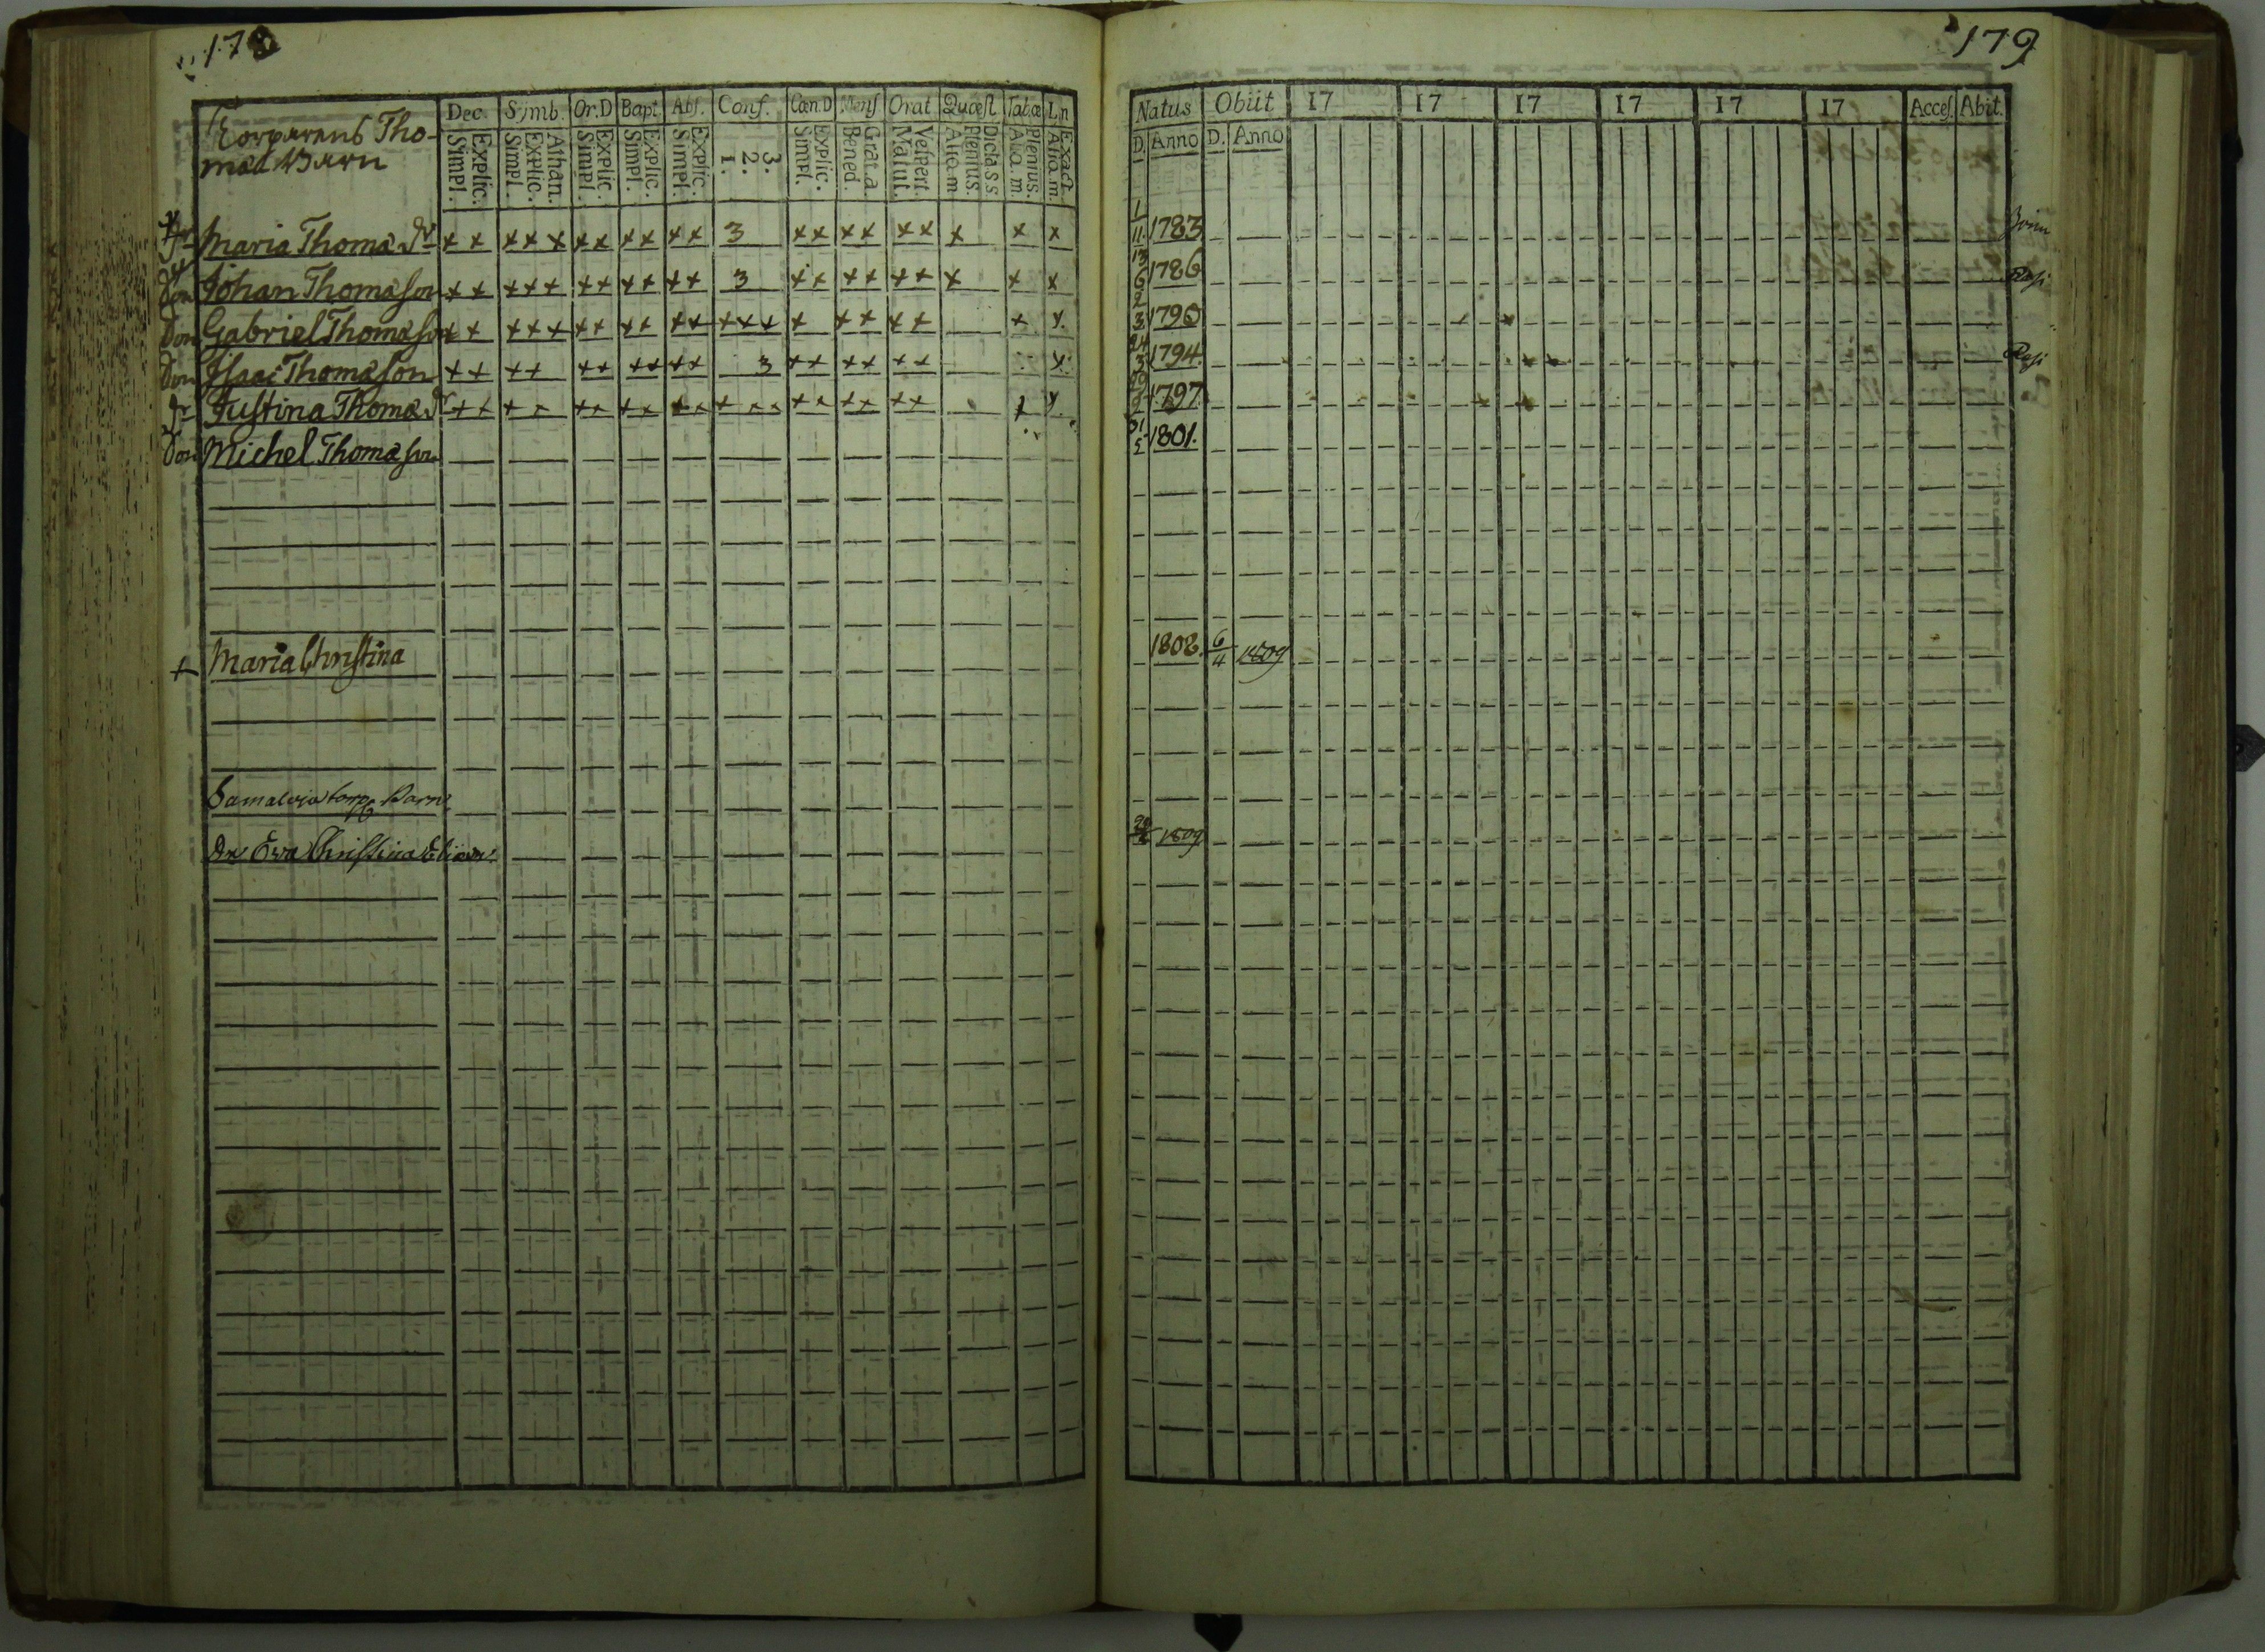 178
Torparens Tho-
mas Barn
Dec. Symb. Or.D Bapt. Abs. Conf. Cœn.D Mens Orat Quæst Tabæ L.n
Explic. Simpl. Athan. Explic. Simpl. Explic. Simpl. Explic. Simpl. Explic. Simpl. 3. 2. 1. Explic. Simpl. Grat.a. Bened. Vespert. Matut. Dicta s s Plenius. Alio m. Plenius. Al.o.m. Exact Alio m.
Dr Maria Thomæ Dr x x x x x x x x x x x 3 x x x x x x x x x
Son Johan Thomæ son x x x x x x x x x x x 3 x x x x x x x x x
Son Gabriel Thomæ son x x x x x x x x x x x x x x x x x x x x x
Son Isaac Thomæ son x x x x x x x x x x 3 x x x x x x x
Dr Justina Thomæ Dr x x x x x x x x x x x x x x x x x x x x
Son Michel Thomæ son
+ Maria Christina
Barn
Dr Eva Christina
179
Natus Obiit 17 17 17 17 17 17 Acces. Abit.
D. Anno D. Anno
1/11 1783
13/6 1786
2/3 1790
24/3 1794
1797
31/5 1801.
1808. 6/4 1809
1809